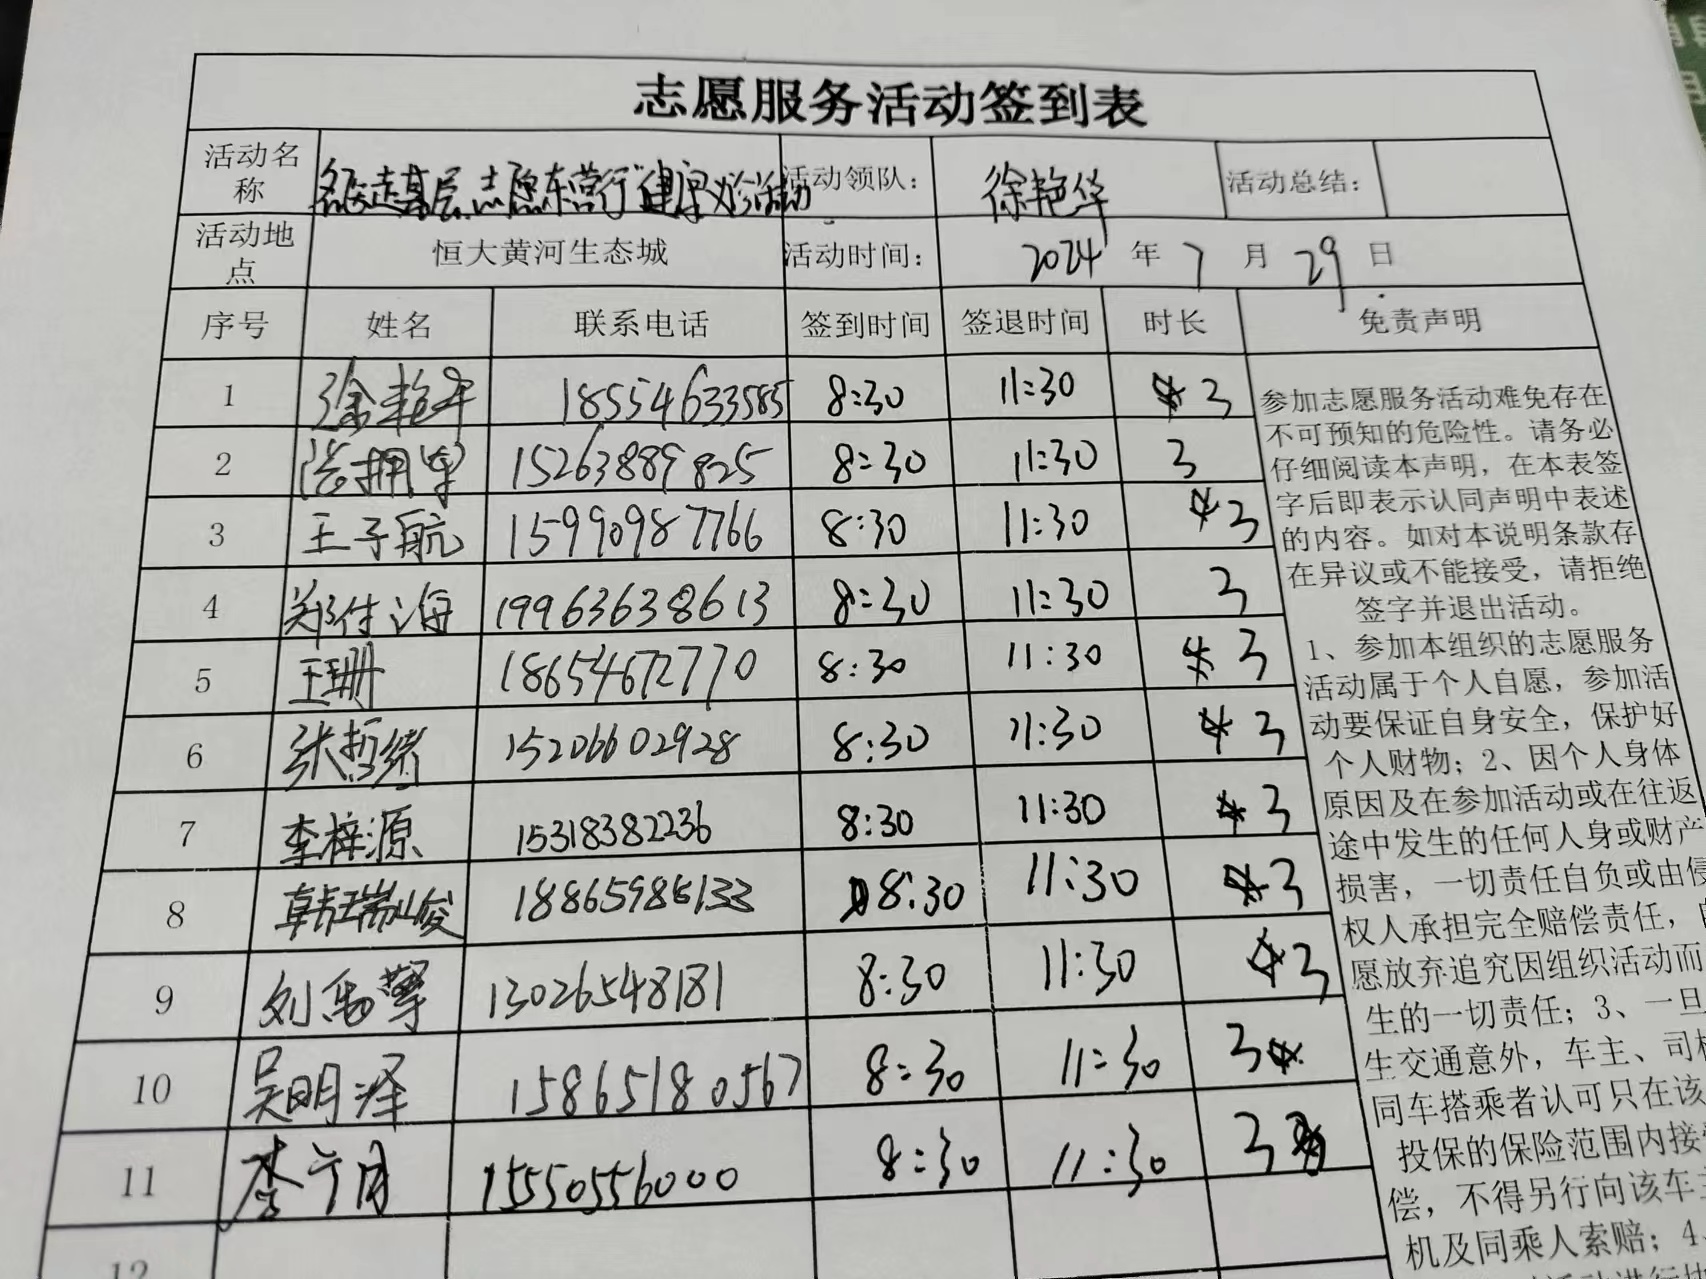 志愿服务活动签到表
活动名称 名医走基层 志愿东营行"健康义诊活动 活动领队： 徐艳华 活动总结：
活动地点 恒大黄河生态城 活动时间： 2024 年 7 月 29 日
序号 姓名 联系电话 签到时间 签退时间 时长 免责声明
1 徐艳华 18554633585 8:30 11:30 3
2 张拥军 15263889825 8:30 11:30 3
3 王子航 15990987766 8:30 11:30 3
4 郑付海 19963638613 8:30 11:30 3
5 王珊 18654672770 8:30 11:30 3
6 张哲绪 15206602928 8:30 11:30 3
7 李梓源 15318382236 8:30 11:30 3
8 韩瑞峻 18865985133 8:30 11:30 3
9 刘 13026548181 8:30 11:30 3
10 吴明泽 15865180567 8:30 11:30 3
11 李 15550556000 8:30 11:30 3
12
参加志愿服务活动难免存在
不可预知的危险性。请务必
仔细阅读本声明，在本表签
字后即表示认同声明中表述
的内容。如对本说明条款存
在异议或不能接受，请拒绝
签字并退出活动。
1、参加本组织的志愿服务
活动属于个人自愿，参加活
动要保证自身安全，保护好
个人财物；2、因个人身体
原因及在参加活动或在往返
途中发生的任何人身或财产
损害，一切责任自负或由侵
权人承担完全赔偿责任，
愿放弃追究因组织活动而
生的一切责任；3、一旦
生交通意外，车主、司机
同车搭乘者认可只在该
投保的保险范围内接
偿，不得另行向该车主
机及同乘人索赔；4、